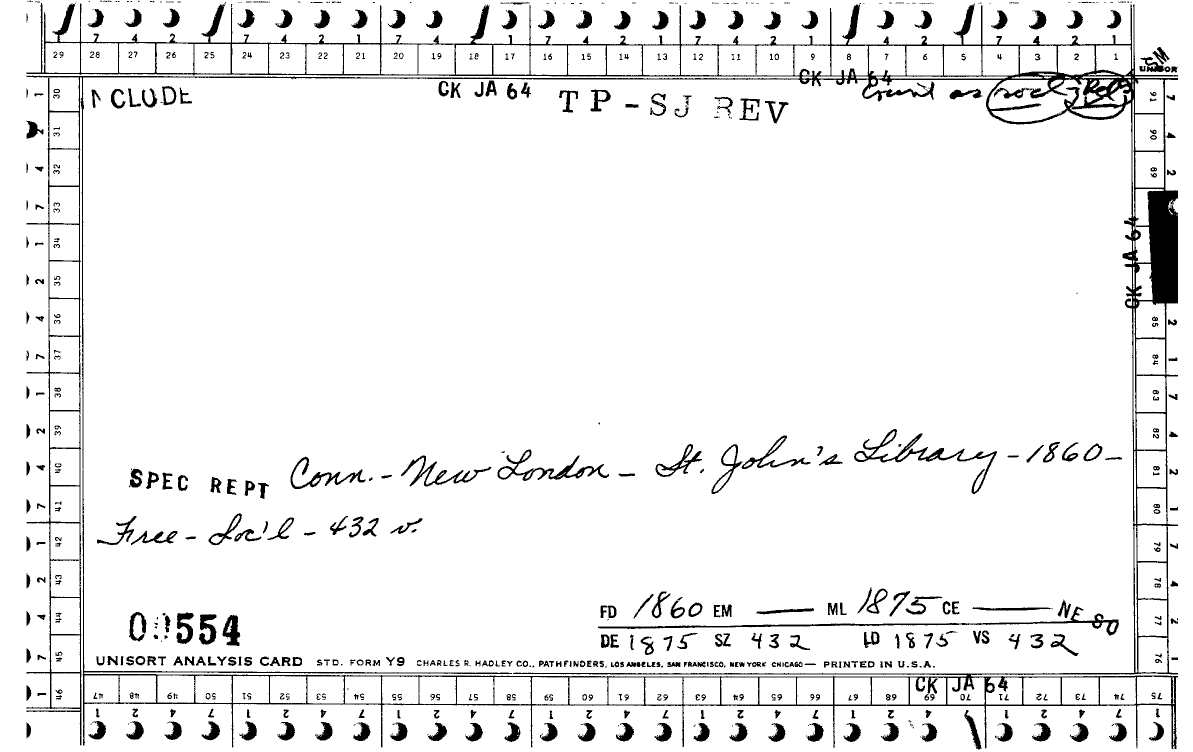 7 4 2 1 7 4 2 1 7 4 2 1 7 4 2 1 7 4 2 1 7 4 2 1 7 4 2 1
29 28 27 26 25 24 23 22 21 20 19 18 17 16 15 14 13 12 11 10 9 8 7 6 5 4 3 2 1
UNISORT
CK JA 64
NCLUDE CK JA 64 TP-SJ REV Count as soc'l - Rel's
30 31 32 33 34 35 36 37 38 39 40 41 42 43 44 45 46
91 90 89 85 84 83 82 81 80 79 78 77 76 75
CK JA 64
SPEC REPT Conn. - New London - St. John's Library - 1860 -
Free - Soc'l - 432 v.
00554
FD 1860 EM — ML 1875 CE — NE SO
DE 1875 SZ 432 LD 1875 VS 432
UNISORT ANALYSIS CARD STD. FORM Y9 CHARLES R. HADLEY CO., PATHFINDERS, LOS ANGELES, SAN FRANCISCO, NEW YORK CHICAGO — PRINTED IN U.S.A.
CK JA 64
47 48 49 50 51 52 53 54 55 56 57 58 59 60 61 62 63 64 65 66 67 68 69 70 71 72 73 74 75
1 2 4 7 1 2 4 7 1 2 4 7 1 2 4 7 1 2 4 7 1 2 4 7 1 2 4 7 1